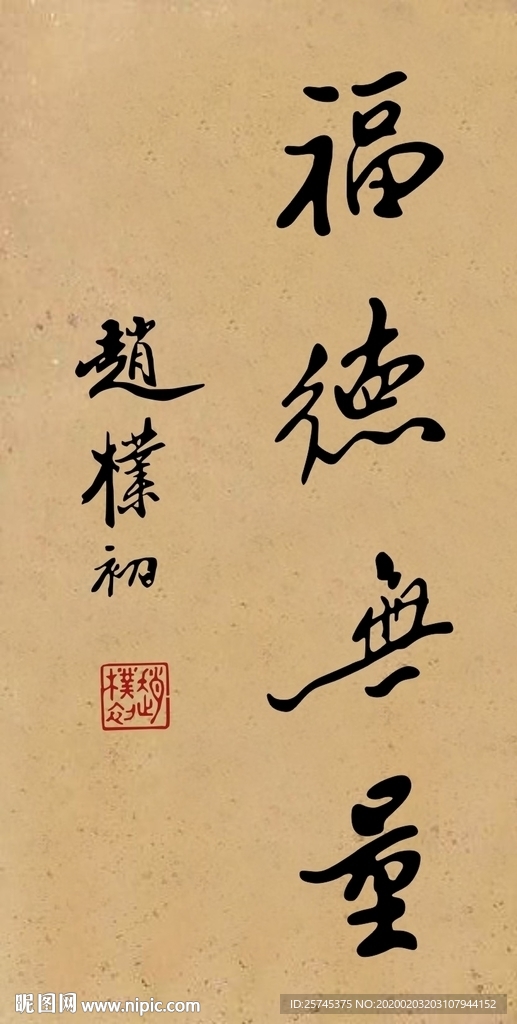 福德無量
趙樸初
趙樸初
昵图网 www.nipic.com
ID:25745375 NO:20200203203107944152